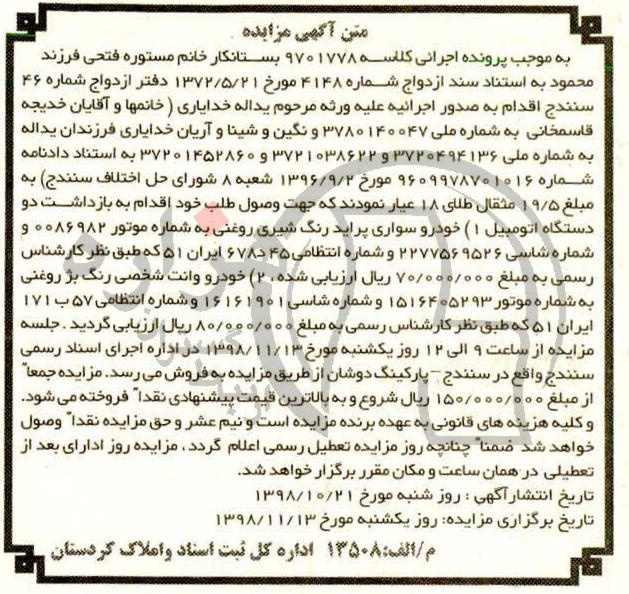 متن آگهی مزایده
به موجب پرونده اجرائی کلاسه ۹۷۰۱۷۷۸ بستانکار خانم مستوره فتحی فرزند
محمود به استناد سند ازدواج شماره ۴۱۴۸ مورخ ۱۳۷۲/۵/۲۱ دفتر ازدواج شماره ۴۶
سنندج اقدام به صدور اجرائیه علیه ورثه مرحوم یداله خدایاری ( خانمها و آقایان خدیجه
قاسمخانی به شماره ملی ۳۷۸۰۱۴۰۰۴۷ و نگین و شینا و آریان خدایاری فرزندان یداله
به شماره ملی ۳۷۲۰۴۹۴۱۳۶ و ۳۷۲۱۰۳۸۶۲۲ و ۳۷۲۰۱۴۵۲۸۶۰ به استناد دادنامه
شماره ۹۶۰۹۹۷۸۷۰۱۰۱۶ مورخ ۱۳۹۶/۹/۲ شعبه ۸ شورای حل اختلاف سنندج) به
مبلغ ۱۹/۵ مثقال طلای ۱۸ عیار نمودند که جهت وصول طلب خود اقدام به بازداشت دو
دستگاه اتومبیل ۱) خودرو سواری پراید رنگ شیری روغنی به شماره موتور ۰۰۸۶۹۸۲ و
شماره شاسی ۲۲۷۷۵۶۹۵۲۶ و شماره انتظامی ۴۵ د۶۷۸ ایران ۵۱ که طبق نظر کارشناس
رسمی به مبلغ ۷۰/۰۰۰/۰۰۰ ریال ارزیابی شده . ۲) خودرو وانت شخصی رنگ بژ روغنی
به شماره موتور ۱۵۱۶۴۰۵۲۹۳ و شماره شاسی ۱۶۱۶۱۹۰۱ و شماره انتظامی ۵۷ ب ۱۷۱
ایران ۵۱ که طبق نظر کارشناس رسمی به مبلغ ۸۰/۰۰۰/۰۰۰ ریال ارزیابی گردید . جلسه
مزایده از ساعت ۹ الی ۱۲ روز یکشنبه مورخ ۱۳۹۸/۱۱/۱۳ در اداره اجرای اسناد رسمی
سنندج واقع در سنندج – پارکینگ دوشان از طریق مزایده به فروش می رسد. مزایده جمعا"
از مبلغ ۱۵۰/۰۰۰/۰۰۰ ریال شروع و به بالاترین قیمت پیشنهادی نقدا" فروخته می شود.
و کلیه هزینه های قانونی به عهده برنده مزایده است و نیم عشر و حق مزایده نقدا" وصول
خواهد شد ضمنا" چنانچه روز مزایده تعطیل رسمی اعلام گردد ، مزایده روز اداری بعد از
تعطیلی در همان ساعت و مکان مقرر برگزار خواهد شد.
تاریخ انتشار آگهی : روز شنبه مورخ ۱۳۹۸/۱۰/۲۱
تاریخ برگزاری مزایده: روز یکشنبه مورخ ۱۳۹۸/۱۱/۱۳
م/الف:۱۳۵۰۸ اداره کل ثبت اسناد واملاک کردستان